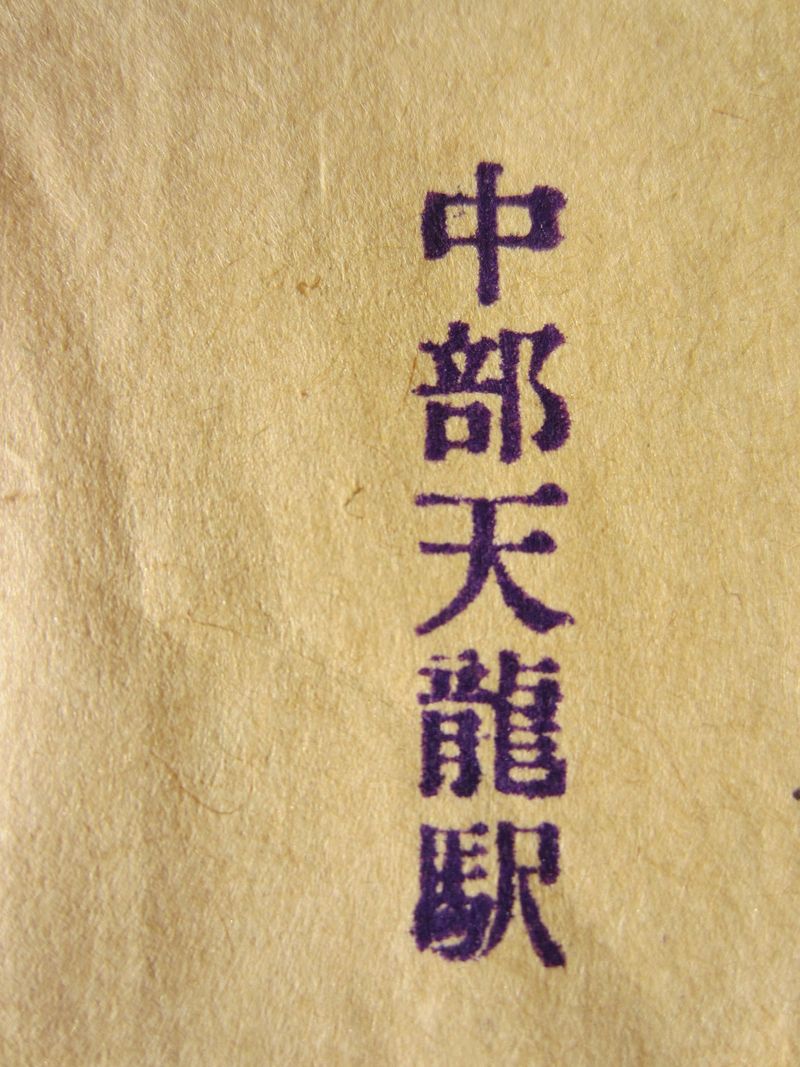 中部天龍駅